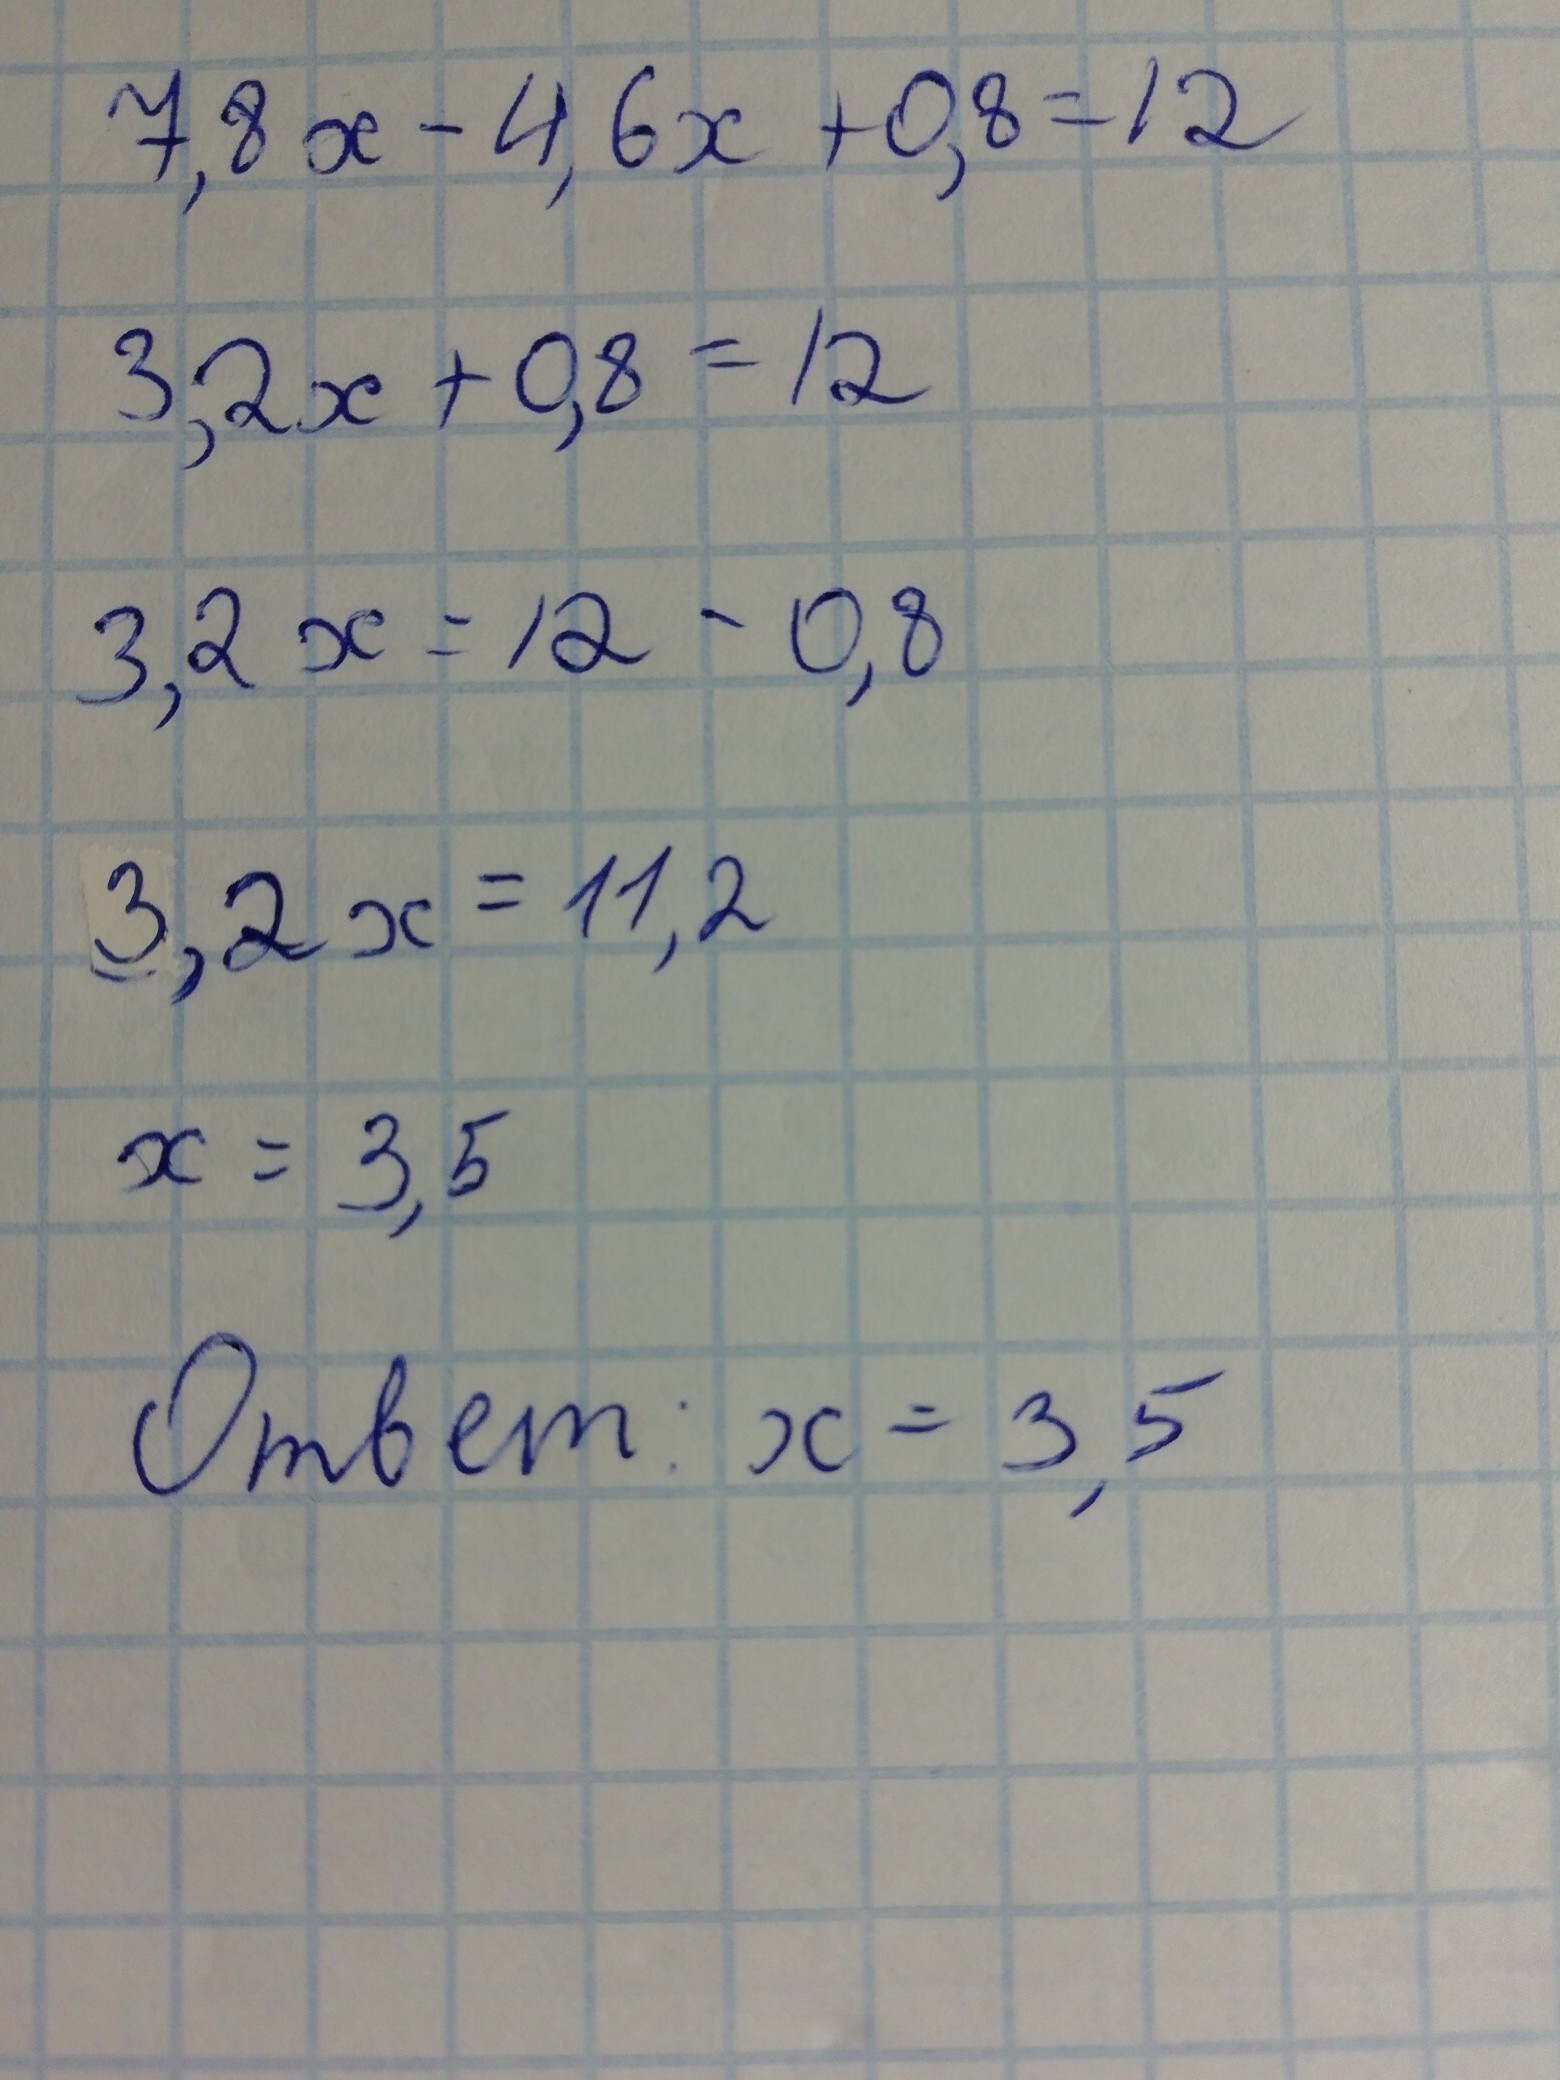 7,8x - 4,6x + 0,8 = 12
3,2x + 0,8 = 12
3,2x = 12 - 0,8
3,2x = 11,2
x = 3,5
Ответ: x = 3,5